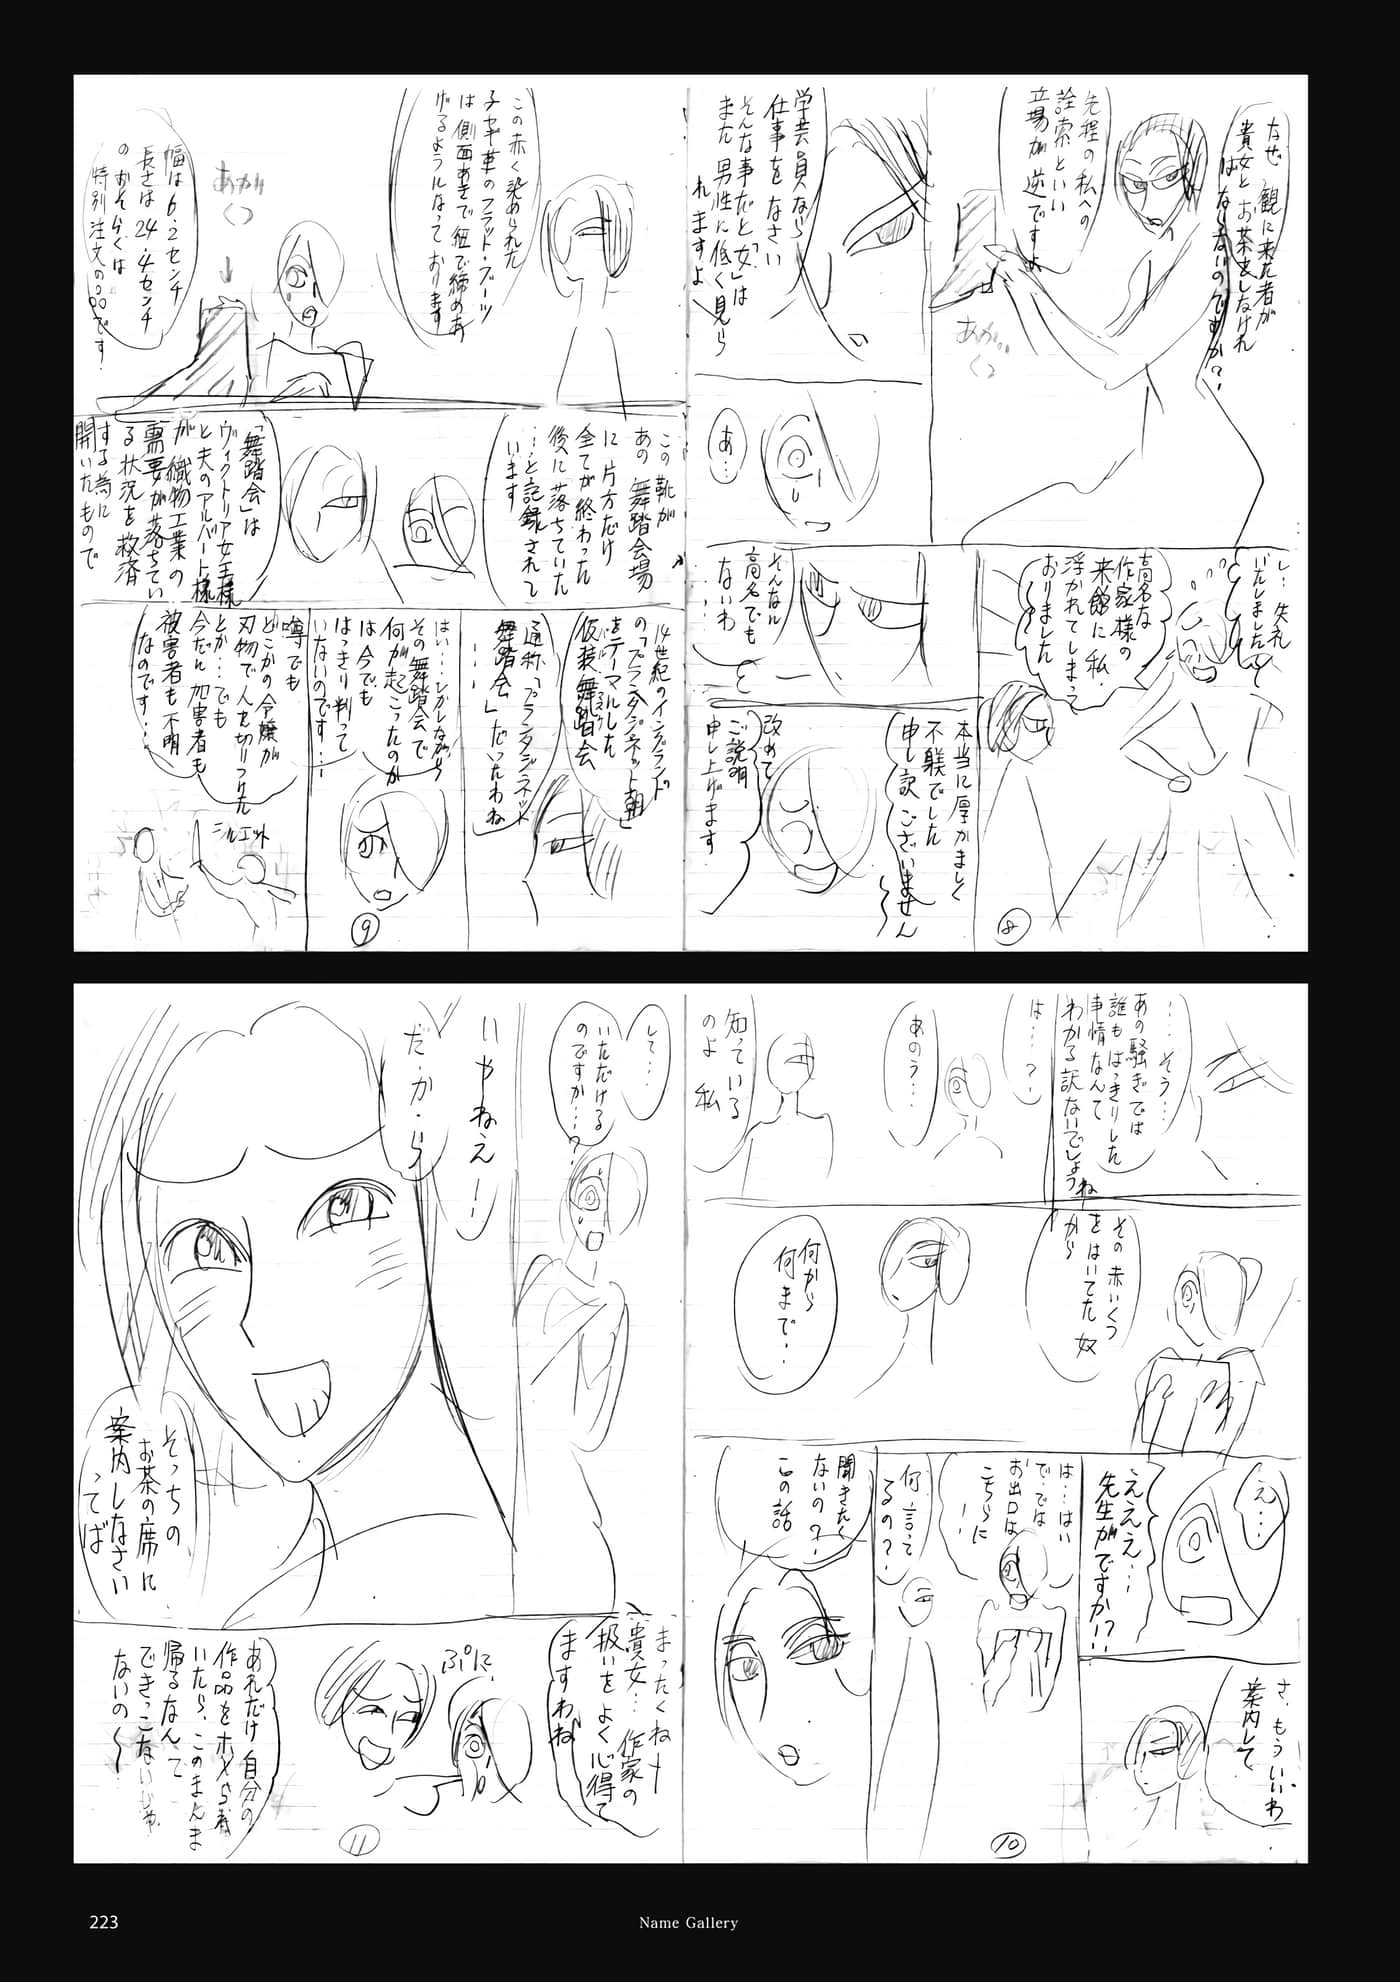 なぜ 観に来た者が
貴女とお茶をしなけれ
ばならないのですか?
先程の私への
詮索といい
立場が逆ですよ
あかい
くつ
学芸員なら
仕事をなさい
そんな事だと「女」は
また男性に低く見ら
れますよ
あ…
し…失礼
いたしましたっ
高名な
作家様の
来館に私・
浮かれてしまう
ておりました
そんなに
高名でも
ないわ
…
本当に厚かましく
不躾でした
申し訳ございません
改めて
ご説明
申し上げます
⑧
この赤く染められた
子ヤギ革のフラット・ブーツ
は側面あきで紐で締めあ
げるようになっております
あかい
くつ
幅は6.2センチ
長さは24.4センチ
のおそらくは
特別注文の○○○です
この靴が
あの舞踏会場
に片方だけ
全てが終わった
後に落ちていた
…と記録されて
います
「舞踏会」は
ヴィクトリア女王様
と夫のアルバート様
が織物工業の
需要が落ちてい
る状況を救済
する為に
開いたもので
14世紀のイングランド
の「プランタジネット朝」
をテーマにした
仮装舞踏会
通称「プランタジネット
舞踏会」だったわね
…
はい…しかしながら
その舞踏会で
何が起こったのか
は今でも
はっきり判って
いないのです…
噂でも
どこかの令嬢が
刃物で人を切りつけた
とか…でも
今だに加害者も
被害者も不明
なのです…
シルエット
⑨
…そう…
あの騒ぎでは
誰もはっきりした
事情なんて
わかる訳ないでしょうね
は…?
あのう…
知っている
のよ 私
その赤いくつ
をはいてた奴
から
何から
何まで…
え…
えええ…
先生がですか!?
さ、もういいわ
案内して
は…はい
で・では
お出口は
こちらに
何言って
るの?
聞きたく
ないの?
この話
⑩
して…
いただける
のですか…?
いやねえー
だ・か・ら
そっちの
お茶の席に
案内しなさい
ってば
まったくねー
貴女…作家の
扱いをよく心得て
ますわね
ぷに
あれだけ自分の
作品をホメられ
いたら、このまんま
帰るなんて
できっこないじゃ
ないの〜
⑪
223
Name Gallery